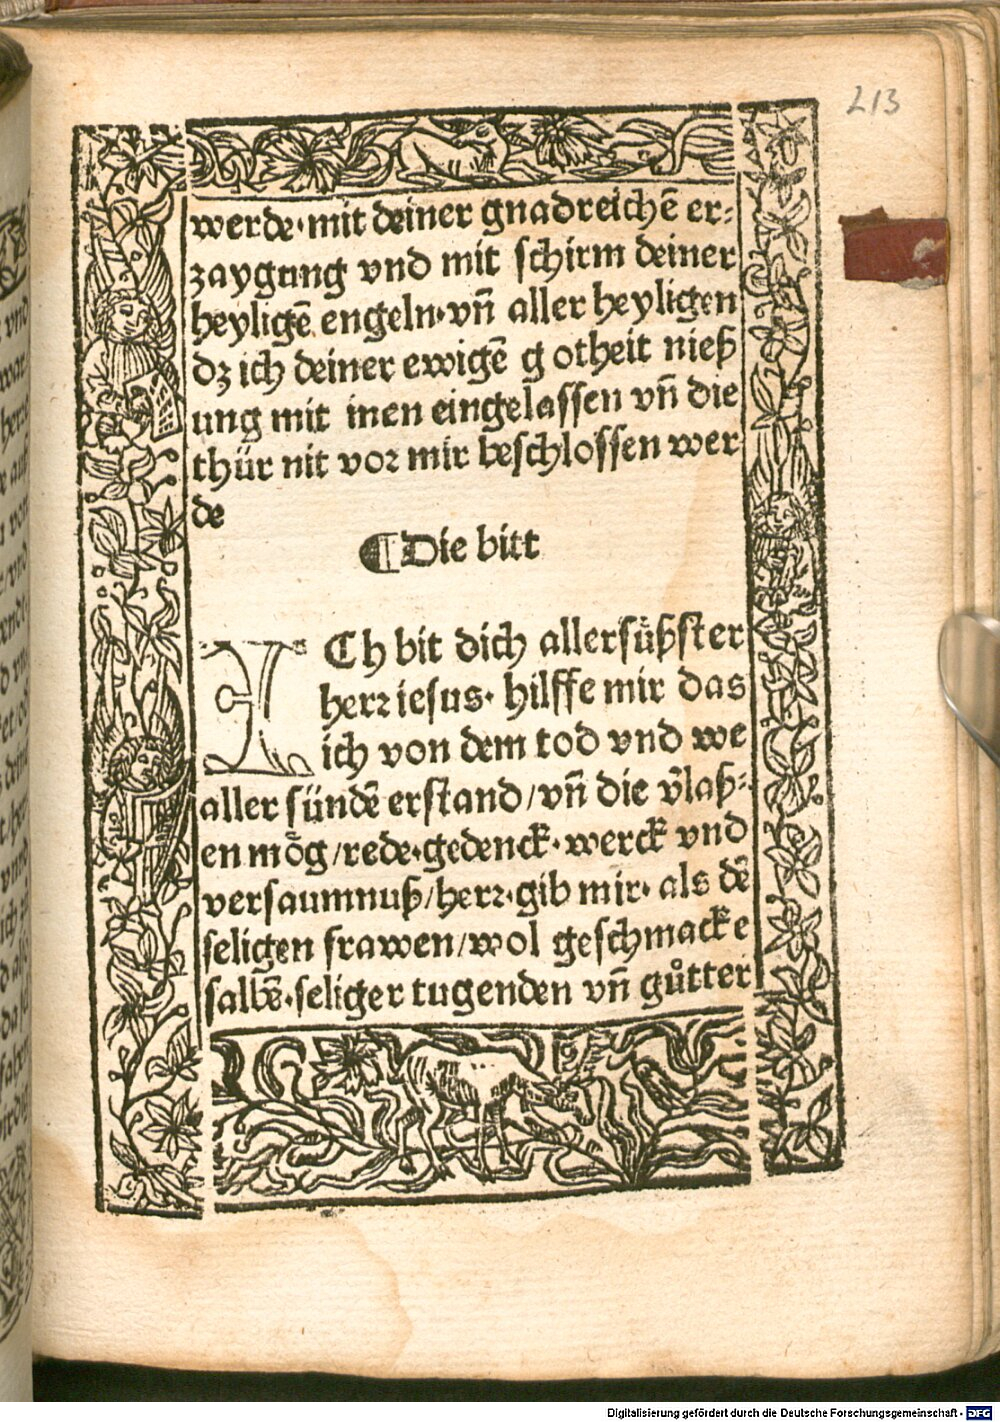 213
werde·mit deiner gnadreichē er⸗
zaygung vnd mit schirm deiner
heyligē engeln·vñ aller heyligen
dꝫ ich deiner ewigē g otheit nieß
ung mit inen eingelassen vñ die
thür nit voꝛ mir beschlossen wer
de
¶Die bitt
ICh bit dich allersuͤßster
herꝛ iesus· hilffe mir das
ich von dem tod vnd we
aller sündē erstand/vñ die v̄laß⸗
en moͤg/rede·gedenck·werck vnd
versaumnuß/herꝛ·gib mir· als dē
seligen frawen/wol geschmacke
salbē·seliger tugenden vñ guͦtter
Digitalisierung gefördert durch die Deutsche Forschungsgemeinschaft - DFG